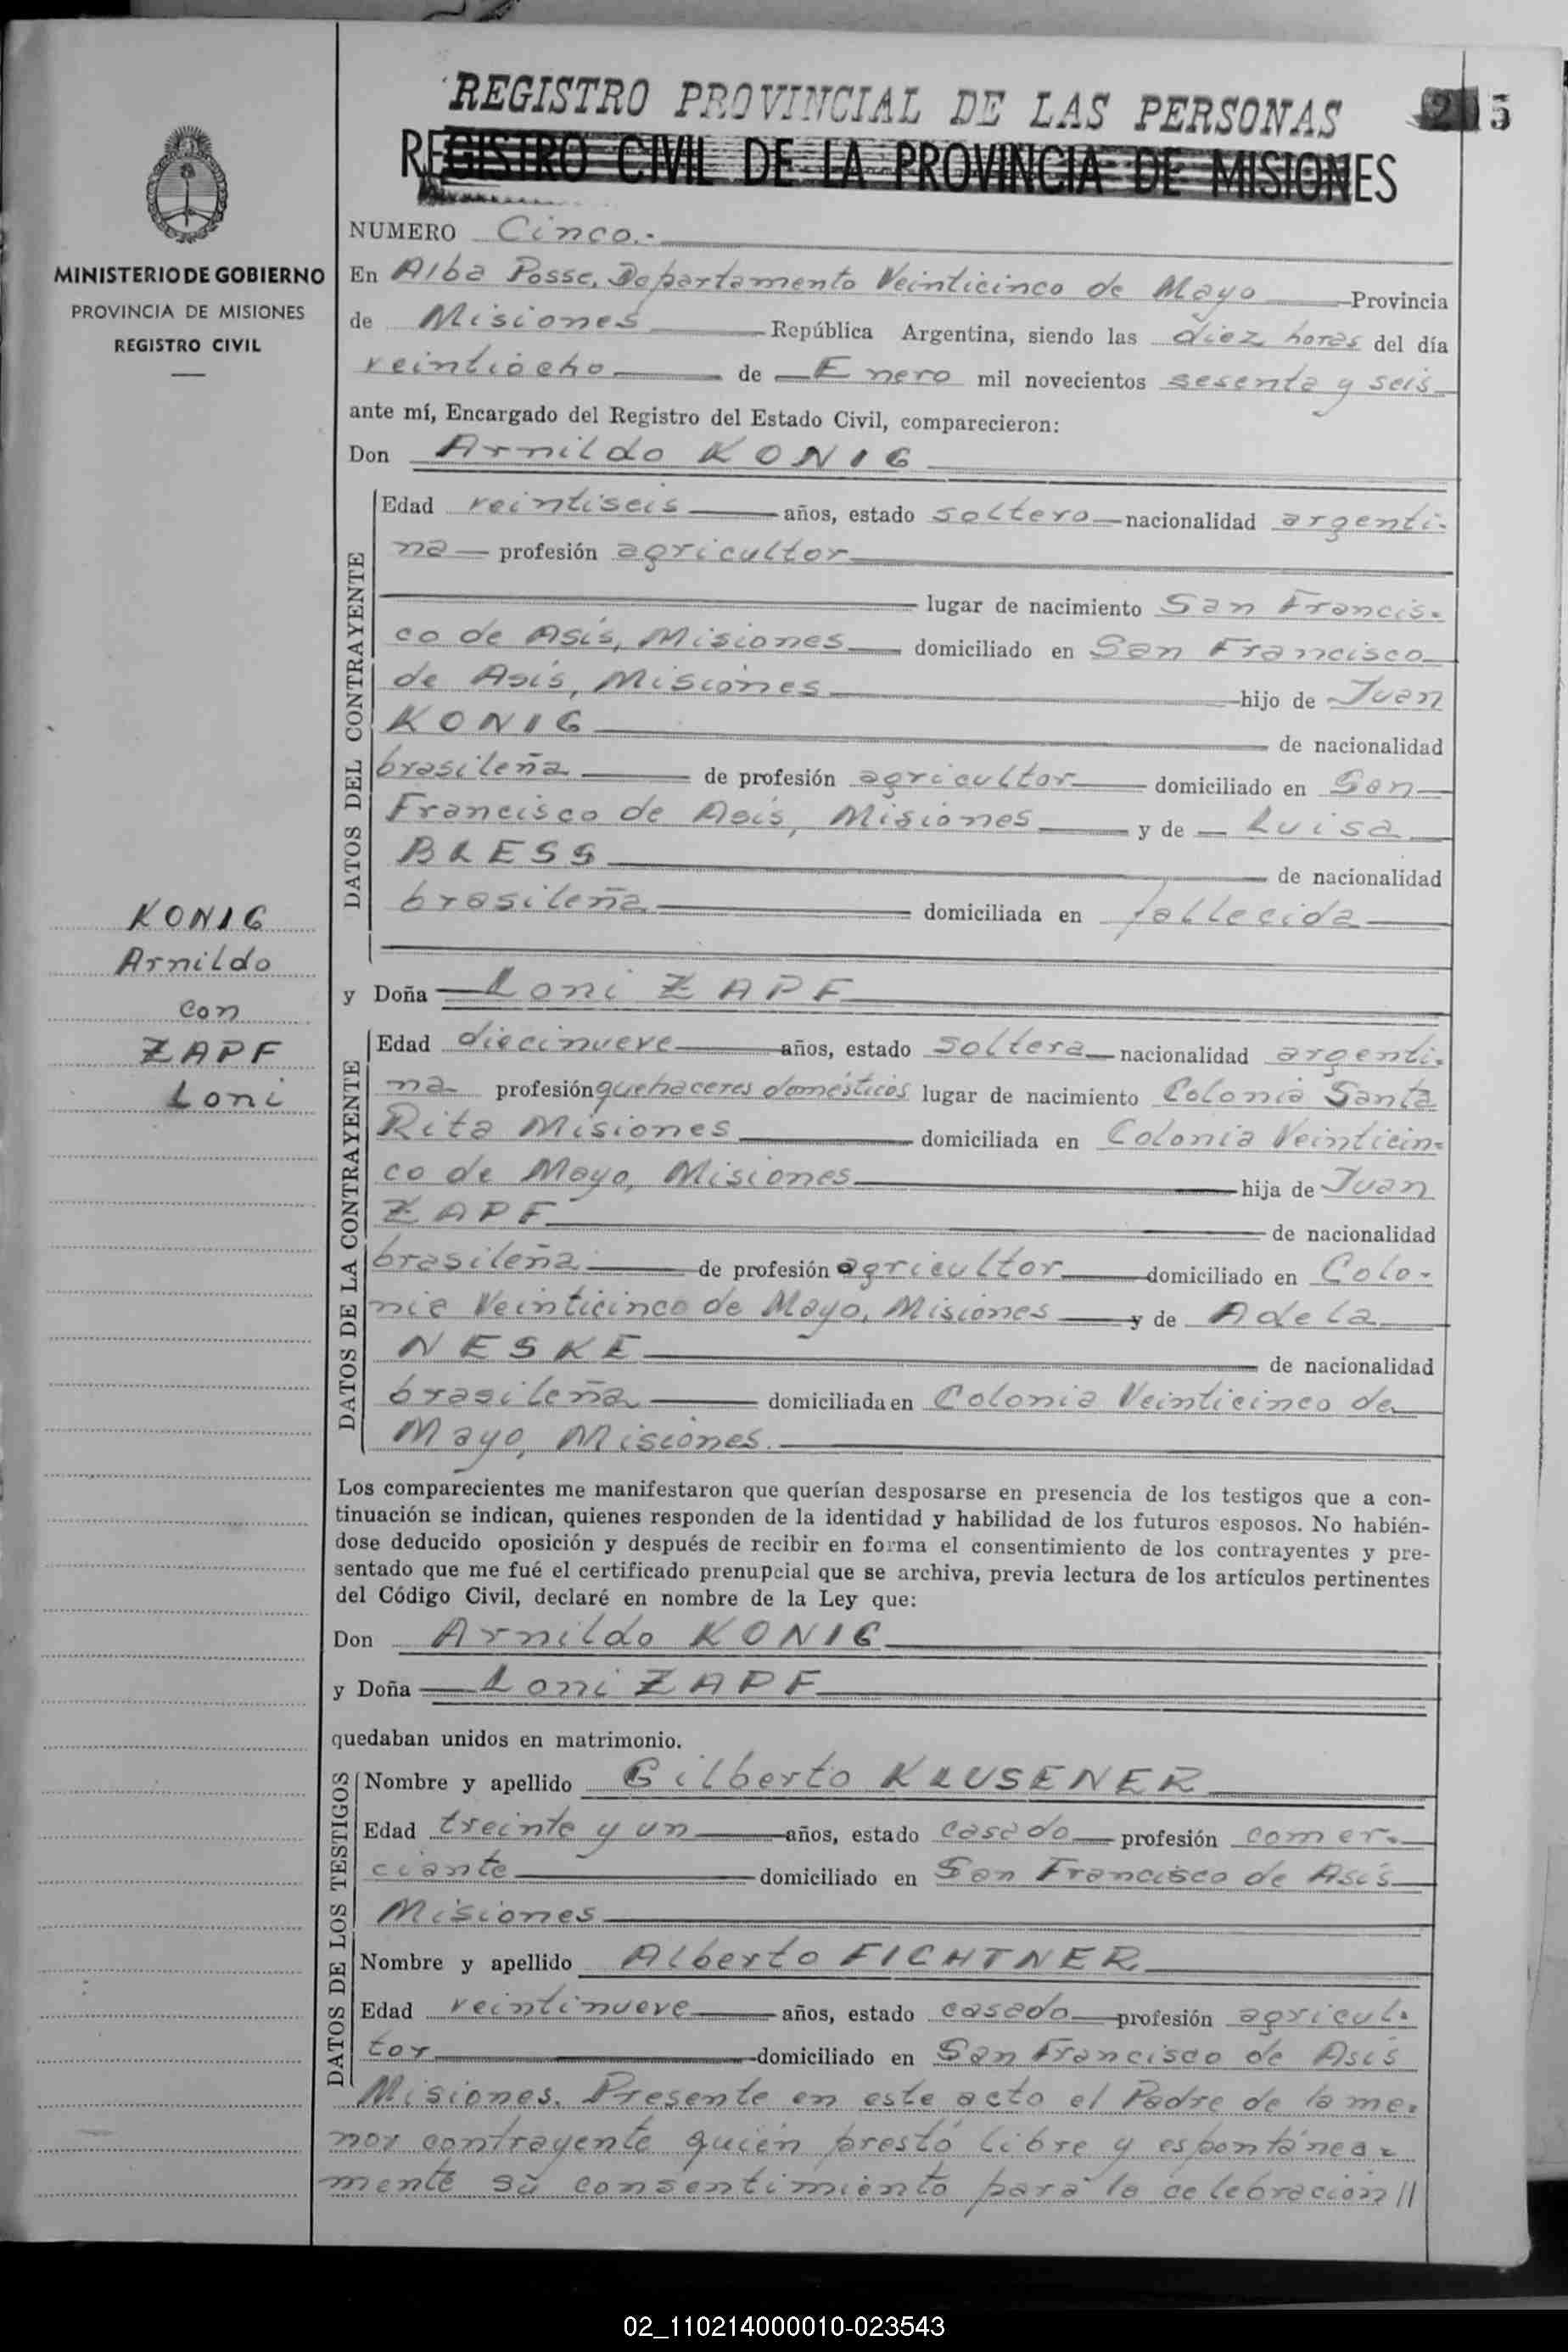 REGISTRO PROVINCIAL DE LAS PERSONAS
5
REGISTRO CIVIL DE LA PROVINCIA DE MISIONES
MINISTERIO DE GOBIERNO
PROVINCIA DE MISIONES
REGISTRO CIVIL
NUMERO Cinco.-
En Alba Posse, Departamento Veinticinco de Mayo Provincia
de Misiones República Argentina, siendo las diez horas del día
veintiocho de Enero mil novecientos sesenta y seis
ante mí, Encargado del Registro del Estado Civil, comparecieron:
Don Arnildo KONIG
DATOS DEL CONTRAYENTE
Edad veintiseis años, estado soltero nacionalidad argenti-
na profesión agricultor
lugar de nacimiento San Francis-
co de Asís, Misiones domiciliado en San Francisco
de Asís, Misiones hijo de Juan
KONIG de nacionalidad
brasileña de profesión agricultor domiciliado en San
Francisco de Asís, Misiones y de Luisa
BLESS de nacionalidad
brasileña domiciliada en fallecida
KONIG
Arnildo
con
ZAPF
Loni
y Doña Loni ZAPF
DATOS DE LA CONTRAYENTE
Edad diecinueve años, estado soltera nacionalidad argenti-
na profesión quehaceres domésticos lugar de nacimiento Colonia Santa
Rita Misiones domiciliada en Colonia Veinticin-
co de Mayo, Misiones hija de Juan
ZAPF de nacionalidad
brasileña de profesión agricultor domiciliado en Colo-
nia Veinticinco de Mayo, Misiones y de Adela
NESKE de nacionalidad
brasileña domiciliada en Colonia Veinticinco de
Mayo, Misiones.
Los comparecientes me manifestaron que querían desposarse en presencia de los testigos que a con-
tinuación se indican, quienes responden de la identidad y habilidad de los futuros esposos. No habién-
dose deducido oposición y después de recibir en forma el consentimiento de los contrayentes y pre-
sentado que me fué el certificado prenupcial que se archiva, previa lectura de los artículos pertinentes
del Código Civil, declaré en nombre de la Ley que:
Don Arnildo KONIG
y Doña Loni ZAPF
quedaban unidos en matrimonio.
DATOS DE LOS TESTIGOS
Nombre y apellido Gilberto KLUSENER
Edad treinta y un años, estado casado profesión comer-
ciante domiciliado en San Francisco de Asís
Misiones
Nombre y apellido Alberto FICHTNER
Edad veintinueve años, estado casado profesión agricul-
tor domiciliado en San Francisco de Asís
Misiones. Presente en este acto el Padre de la me-
nor contrayente quién prestó libre y espontánea-
mente su consentimiento para la celebración //
02_110214000010-023543